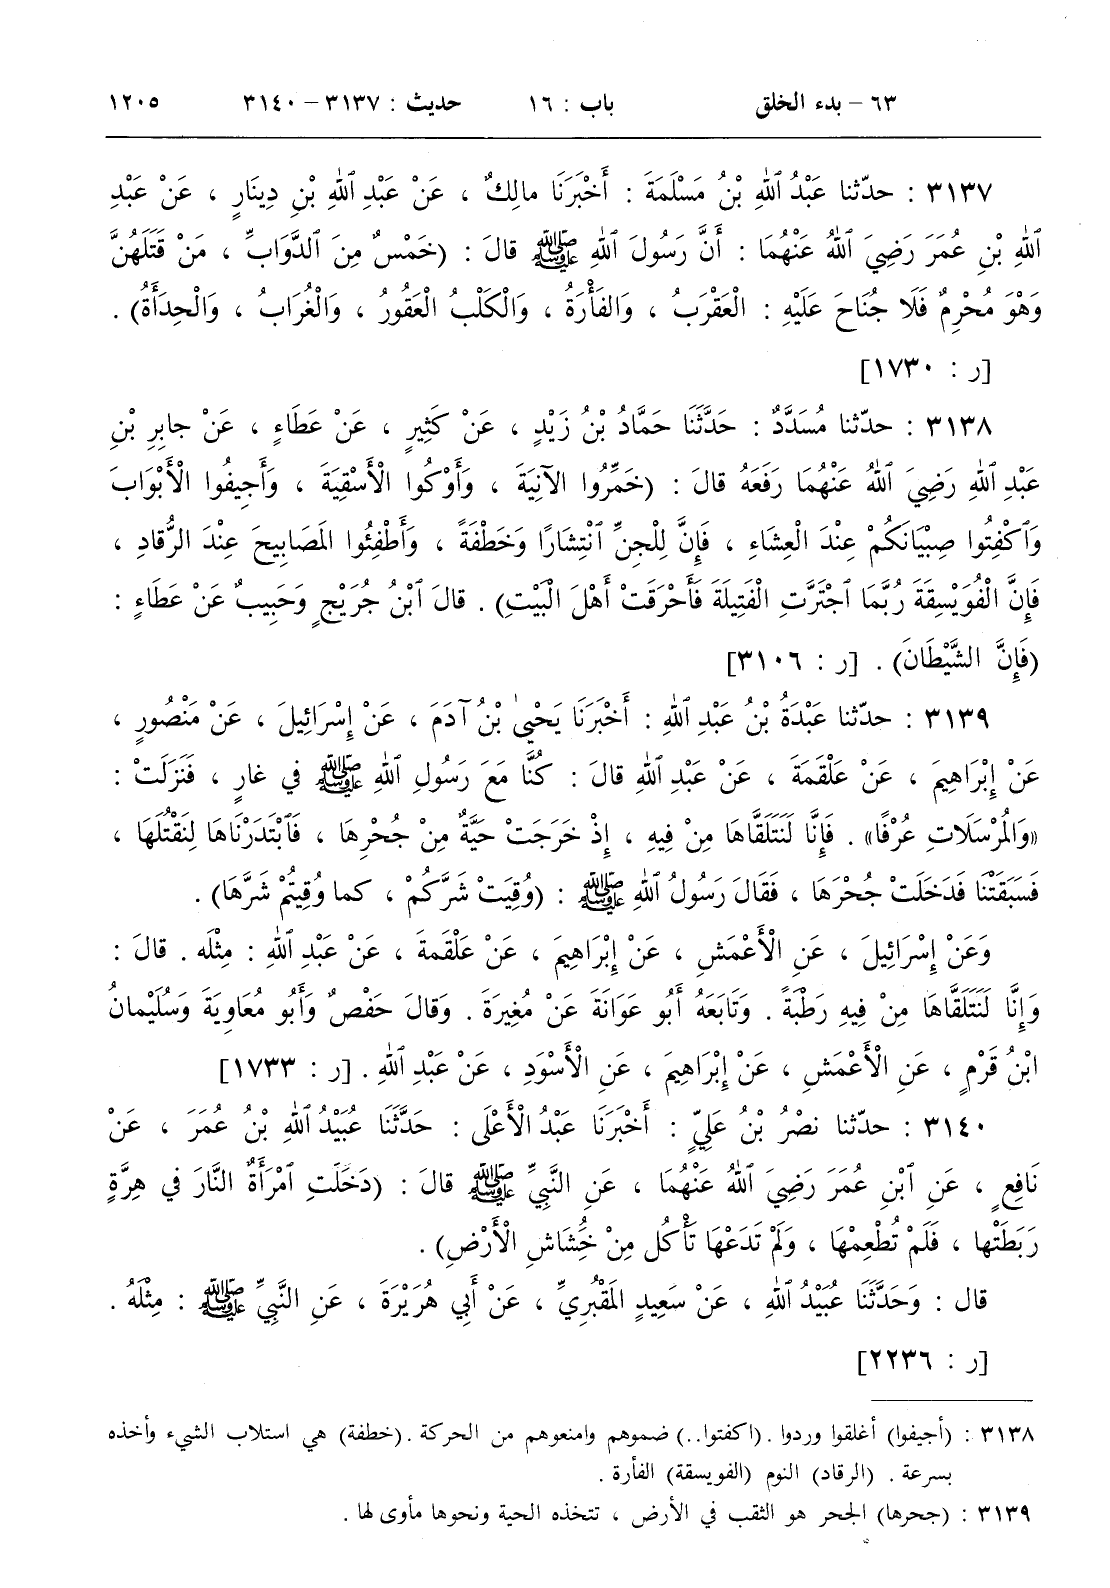 ٦٣ – بدء الخلق باب : ١٦ حديث : ٣١٣٧ – ٣١٤٠ ١٢٠٥
٣١٣٧ : حدّثنا عَبْدُ ٱللهِ بْنُ مَسْلَمَةَ : أَخْبَرَنَا مالِكٌ ، عَنْ عَبْدِ ٱللهِ بْنِ دِينَارٍ ، عَنْ عَبْدِ
ٱللهِ بْنِ عُمَرَ رَضِيَ ٱللهُ عَنْهُمَا : أَنَّ رَسُولَ ٱللهِ ﷺ قالَ : (خَمْسٌ مِنَ ٱلدَّوَابِّ ، مَنْ قَتَلَهُنَّ
وَهْوَ مُحْرِمٌ فَلَا جُنَاحَ عَلَيْهِ : الْعَقْرَبُ ، وَالفَأْرَةُ ، وَالْكَلْبُ الْعَقُورُ ، وَالْغُرَابُ ، وَالْحِدَأَةُ) .
[ر : ١٧٣٠]
٣١٣٨ : حدّثنا مُسَدَّدٌ : حَدَّثَنَا حَمَّادُ بْنُ زَيْدٍ ، عَنْ كَثِيرٍ ، عَنْ عَطَاءٍ ، عَنْ جابِرِ بْنِ
عَبْدِ ٱللهِ رَضِيَ ٱللهُ عَنْهُمَا رَفَعَهُ قالَ : (خَمِّرُوا الآنِيَةَ ، وَأَوْكُوا الْأَسْقِيَةَ ، وَأَجِيفُوا الْأَبْوَابَ
وَٱكْفِتُوا صِبْيَانَكُمْ عِنْدَ الْعِشَاءِ ، فَإِنَّ لِلْجِنِّ ٱنْتِشَارًا وَخَطْفَةً ، وَأَطْفِئُوا المَصَابِيحَ عِنْدَ الرُّقادِ ،
فَإِنَّ الْفُوَيْسِقَةَ رُبَّمَا ٱجْتَرَّتِ الْفَتِيلَةَ فَأَحْرَقَتْ أَهْلَ الْبَيْتِ) . قالَ ٱبْنُ جُرَيْجٍ وَحَبِيبٌ عَنْ عَطَاءٍ :
(فَإِنَّ الشَّيْطَانَ) . [ر : ٣١٠٦]
٣١٣٩ : حدّثنا عَبْدَةُ بْنُ عَبْدِ ٱللهِ : أَخْبَرَنَا يَحْيىٰ بْنُ آدَمَ ، عَنْ إِسْرَائِيلَ ، عَنْ مَنْصُورٍ ،
عَنْ إِبْرَاهِيمَ ، عَنْ عَلْقَمَةَ ، عَنْ عَبْدِ ٱللهِ قالَ : كُنَّا مَعَ رَسُولِ ٱللهِ ﷺ في غارٍ ، فَنَزَلَتْ :
«وَالمُرْسَلَاتِ عُرْفًا» . فَإِنَّا لَنَتَلَقَّاهَا مِنْ فِيهِ ، إِذْ خَرَجَتْ حَيَّةٌ مِنْ جُحْرِهَا ، فَٱبْتَدَرْنَاهَا لِنَقْتُلَهَا ،
فَسَبَقَتْنَا فَدَخَلَتْ جُحْرَهَا ، فَقَالَ رَسُولُ ٱللهِ ﷺ : (وُقِيَتْ شَرَّكُمْ ، كما وُقِيتُمْ شَرَّهَا) .
وَعَنْ إِسْرَائِيلَ ، عَنِ الْأَعْمَشِ ، عَنْ إِبْرَاهِيمَ ، عَنْ عَلْقَمةَ ، عَنْ عَبْدِ ٱللهِ : مِثْلَه . قالَ :
وَإِنَّا لَنَتَلَقَّاهَا مِنْ فِيهِ رَطْبَةً . وَتَابَعَهُ أَبُو عَوَانَةَ عَنْ مُغِيرَةَ . وَقالَ حَفْصٌ وَأَبُو مُعَاوِيَةَ وَسُلَيْمانُ
ابْنُ قَرْمٍ ، عَنِ الْأَعْمَشِ ، عَنْ إِبْرَاهِيمَ ، عَنِ الأَسْوَدِ ، عَنْ عَبْدِ ٱللهِ . [ر : ١٧٣٣]
٣١٤٠ : حدّثنا نَصْرُ بْنُ عَلِيٍّ : أَخْبَرَنَا عَبْدُ الْأَعْلَى : حَدَّثَنَا عُبَيْدُ ٱللهِ بْنُ عُمَرَ ، عَنْ
نَافِعٍ ، عَنِ ٱبْنِ عُمَرَ رَضِيَ ٱللهُ عَنْهُمَا ، عَنِ النَّبِيِّ ﷺ قالَ : (دَخَلَتِ ٱمْرَأَةٌ النَّارَ في هِرَّةٍ
رَبَطَتْها ، فَلَمْ تُطْعِمْهَا ، وَلَمْ تَدَعْهَا تَأْكُل مِنْ خِشَاشِ الْأَرْضِ) .
قال : وَحَدَّثَنَا عُبَيْدُ ٱللهِ ، عَنْ سَعِيدٍ المَقْبُرِيِّ ، عَنْ أَبِي هُرَيْرَةَ ، عَنِ النَّبِيِّ ﷺ : مِثْلَهُ .
[ر : ٢٢٣٦]
٣١٣٨ : (أجيفوا) أغلقوا وردوا . (اكفتوا..) ضموهم وامنعوهم من الحركة . (خطفة) هي استلاب الشيء وأخذه
بسرعة . (الرقاد) النوم (الفويسقة) الفأرة .
٣١٣٩ : (جحرها) الجحر هو الثقب في الأرض ، تتخذه الحية ونحوها مأوى لها .